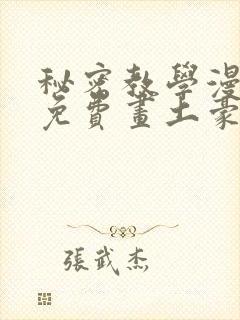 秘密教學漫
免費畫土豪
張武杰